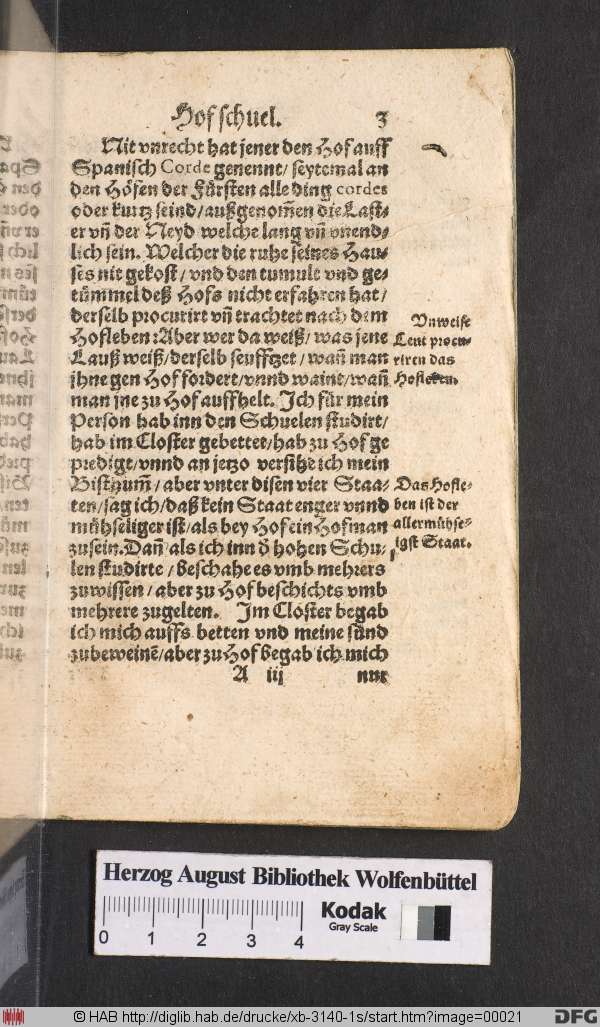 Hof schuel. 3
Nit vnrecht hat jener den Hof auff
Spanisch Corde genennt/ seytemal an
den Höfen der Fürsten alle ding cordes
oder kurtz seind/außgenom̃en die Last⸗
er vn̄ der Neyd welche lang vn̄ vnend⸗
lich sein. Welcher die ruhe seines Hau⸗
ses nit gekost/ vnd den tumult vnd ge⸗
tümmel deß Hofs nicht erfahren hat/
derselb procurirt vn̄ trachtet nach dem
Hofleben: Aber wer da weiß/ was jene
Lauß weiß/derselb seufftzet/ wan̄ man
jhne gen Hof fordert/vnnd waint/wan̄
man jne zu Hof auffhelt. Jch für mein
Person hab inn den Schuelen studirt/
hab im Closter gebettet/hab zu Hof ge
prediget/vnnd an jetzo versihe ich mein
Bisthum̃/ aber vnter disen vier Staa⸗
ten/sag ich/daß kein Staat enger vnnd
mühseliger ist/als bey Hof ein Hofman
zusein. Dan̄ als ich inn d̕ hohen Schu⸗
len studirte / beschahe es vmb mehrers
zuwissen/ aber zu Hof beschichts vmb
mehrere zugelten. Jm Closter begab
ich mich auffs betten vnd meine sünd
zubeweinē/aber zu Hof begab ich mich
A iij nur
Vnweise
Leut procu⸗
riren das
Hofleben.
Das Hofle⸗
ben ist der
allermühse⸗
ligst Staat.
Herzog August Bibliothek Wolfenbüttel
Kodak
Gray Scale
0 1 2 3 4
© HAB http://diglib.hab.de/drucke/xb-3140-1s/start.htm?image=00021
DFG